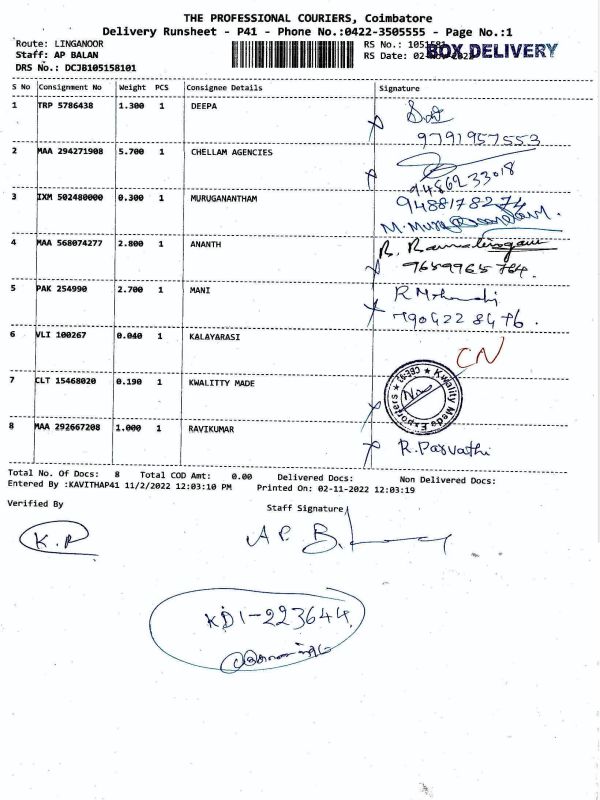 THE PROFESSIONAL COURIERS, Coimbatore
Delivery Runsheet - P41 - Phone No.:0422-3505555 - Page No.:1
Route: LINGANOOR
RS No.:
Staff: AP BALAN
BOX DELIVERY
RS Date: 02-Nov-2022
DRS No.: DCJB105158101
S No Consignment No Weight PCS Consignee Details Signature
1 TRP 5786438 1.300 1 DEEPA
9791957553
2 MAA 294271908 5.700 1 CHELLAM AGENCIES
9486233018
3 IXM 502480000 0.300 1 MURUGANANTHAM 9488178274
4 MAA 568074277 2.800 1 ANANTH
9659765764.
5 PAK 254990 2.700 1 MANI
7904228476.
6 VLI 100267 0.040 1 KALAYARASI
CN
7 CLT 15468020 0.190 1 KWALITTY MADE
Kwality Made Exporters ★ CBE-92 ★
8 MAA 292667208 1.000 1 RAVIKUMAR
R. Parvathi
Total No. Of Docs: 8 Total COD Amt: 0.00 Delivered Docs: Non Delivered Docs:
Entered By :KAVITHAP41 11/2/2022 12:03:10 PM Printed On: 02-11-2022 12:03:19
Verified By Staff Signature
K.P
KD1-223644